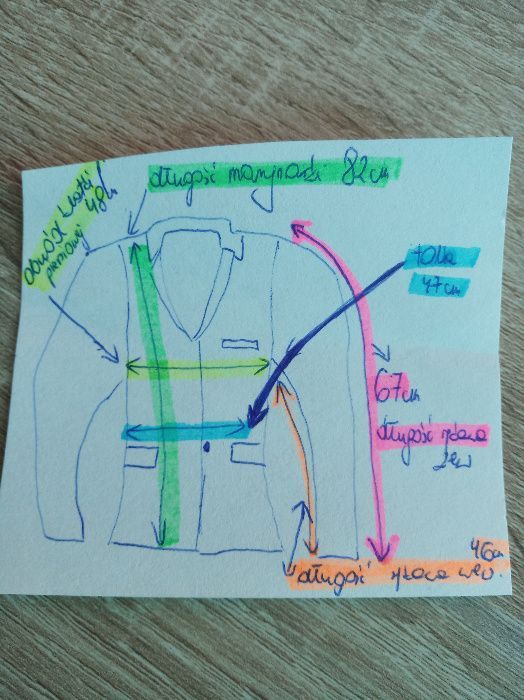 długość marynarki 82cm
obwód klatki
piersiowej 48cm
talia
47cm
67cm
długość rękawa
zew
46cm
długość rękawa wew.